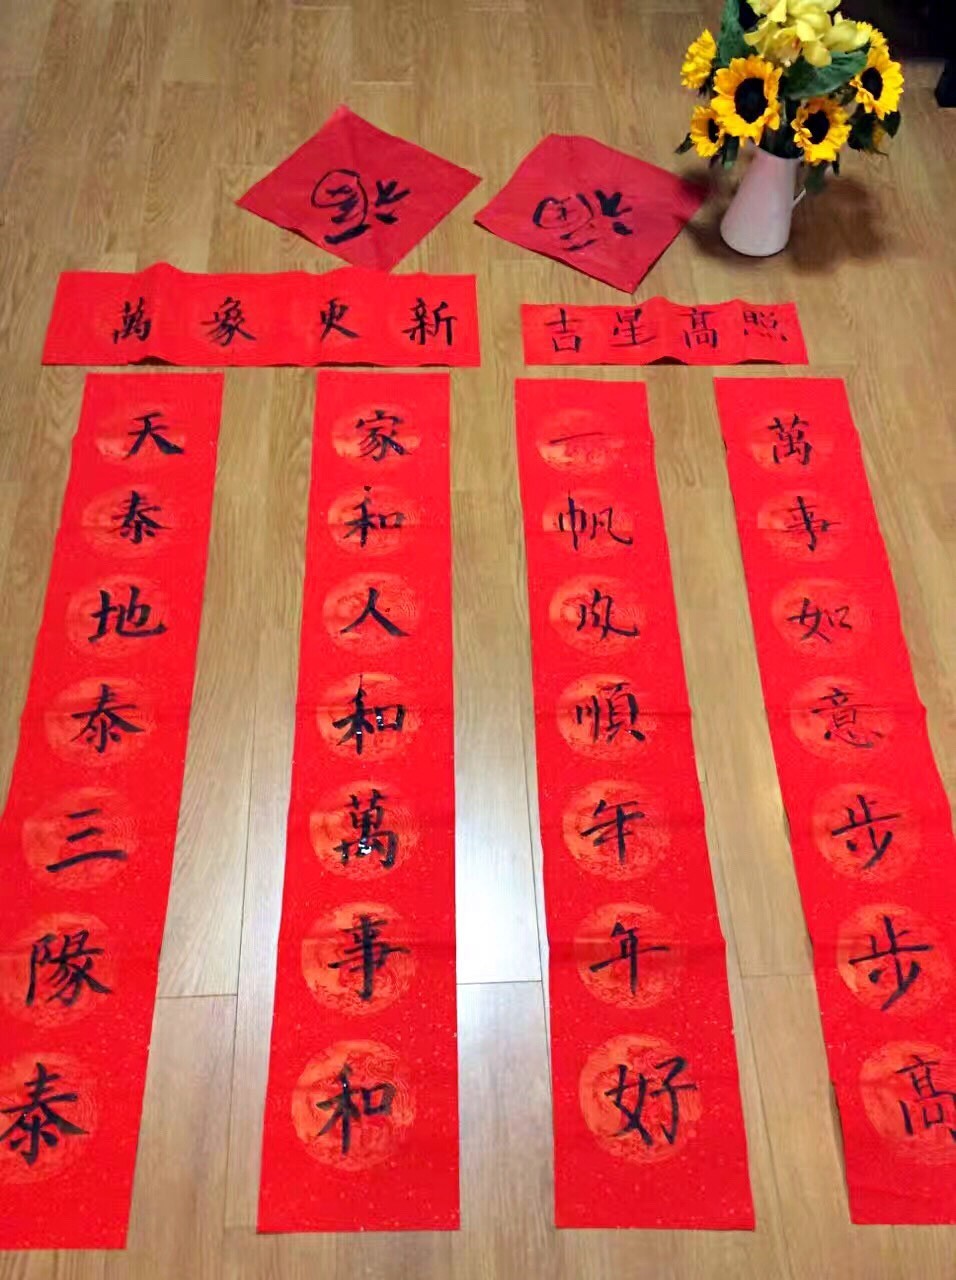 福
福
萬象更新
吉星高照
天泰地泰三陽泰
家和人和萬事和
一帆风順年年好
萬事如意步步高